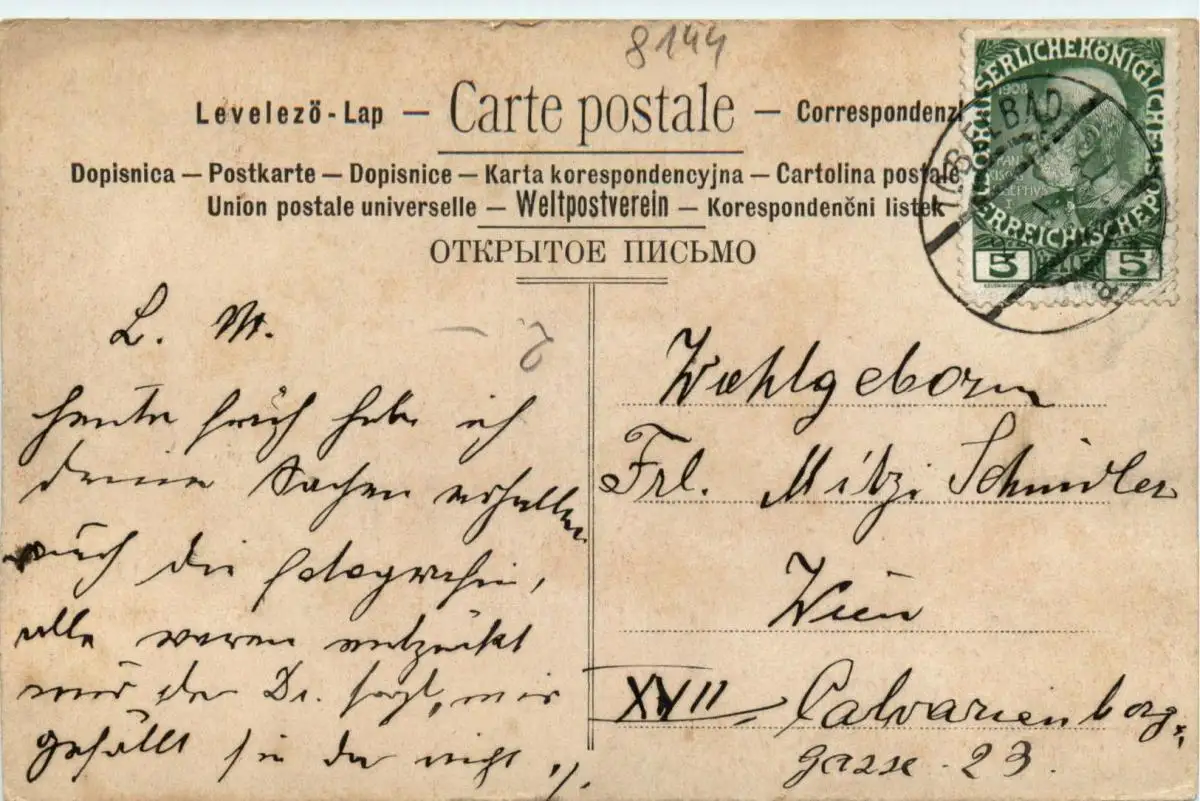 8144
Levelező-Lap — Carte postale — Correspondenzk
Dopisnica — Postkarte — Dopisnice — Karta korespondencyjna — Cartolina postale
Union postale universelle — Weltpostverein — Korespondenčni listek
ОТКРЫТОЕ ПИСЬМО
KAISERLICHEKÖNIGLICHE
1908
TOBELBAD
ÖSTERREICHISCHE POST
5 HELLER 5
L. M.
heute früh habe ich
deine Sachen erhalten
auch die fotografien,
alle waren entzückt
nur der Dr. sagt, mir
gefällt sie da nicht!
Wohlgeborn
Frl. Mitzi Schindler
Wien
XVII Calvarienberg
gasse 23.